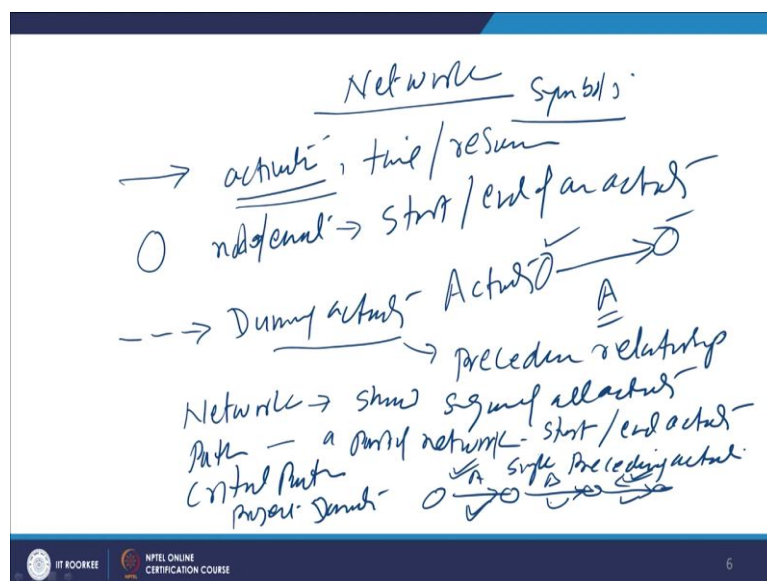 Network Symbols
→ activity, time/resour
O node/event → start/end of an activity
---→ Dummy activity Activity O → O
A
→ precedence relationship
Network → show sequence of all activity
Path — a part of network - start/end activity
Critical Path single Preceding activity
Project Duration O A O B
IIT ROORKEE NPTEL ONLINE
CERTIFICATION COURSE
6